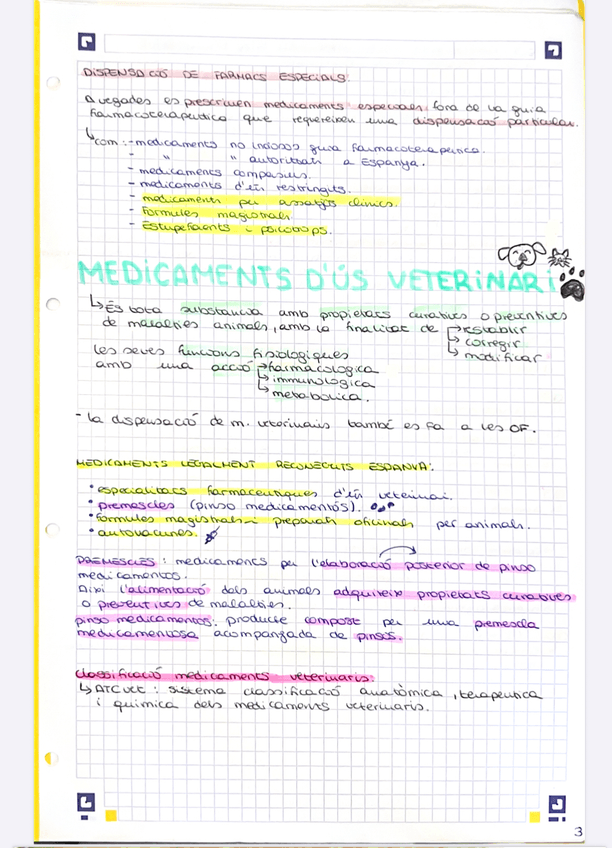 DISPENSACIÓ DE FARMACS ESPECIALS:
A vegades es prescriuen medicaments especials fora de la guia
farmacoterapeutica que requereixen una dispensació particular.
↳ com: - medicaments no inclosos guia farmacoterapeutica.
- " " autoritzats a Espanya.
- medicaments compasius.
- medicaments d'ús restringits.
- medicaments per assatjos clinics.
- formules magistrals.
- Estupefaents i psicotrops.
MEDICAMENTS D'ÚS VETERINARI
↳ És tota substancia amb propietats curatives o preventives
de malalties animals, amb la finalitat de → establir
↳ corregir
↳ modificar
les seves funcions fisiologiques
amb una acció → farmacologica
↳ immunologica
↳ metabolica.
- la dispensació de m. veterinaris també es fa a les OF.
MEDICAMENTS LEGALMENT RECONEGUTS ESPANYA:
• especialitats farmaceutiques d'ús veterinari.
• premescles (pinso medicamentós).
• formules magistrals i preparats oficinals per animals.
• autovacunes.
PREMESCLES: medicaments per l'elaboració posterior de pinso
medicamentos.
Així l'alimentació dels animals adquireix propietats curatives
o preventives de malalties.
pinso medicamentós: producte compost per una premescla
medicamentosa acompanyada de pinsos.
Classificació medicaments veterinaris:
↳ ATCvet: sistema classificació anatòmica, terapeutica
i quimica dels medicaments veterinaris.
3